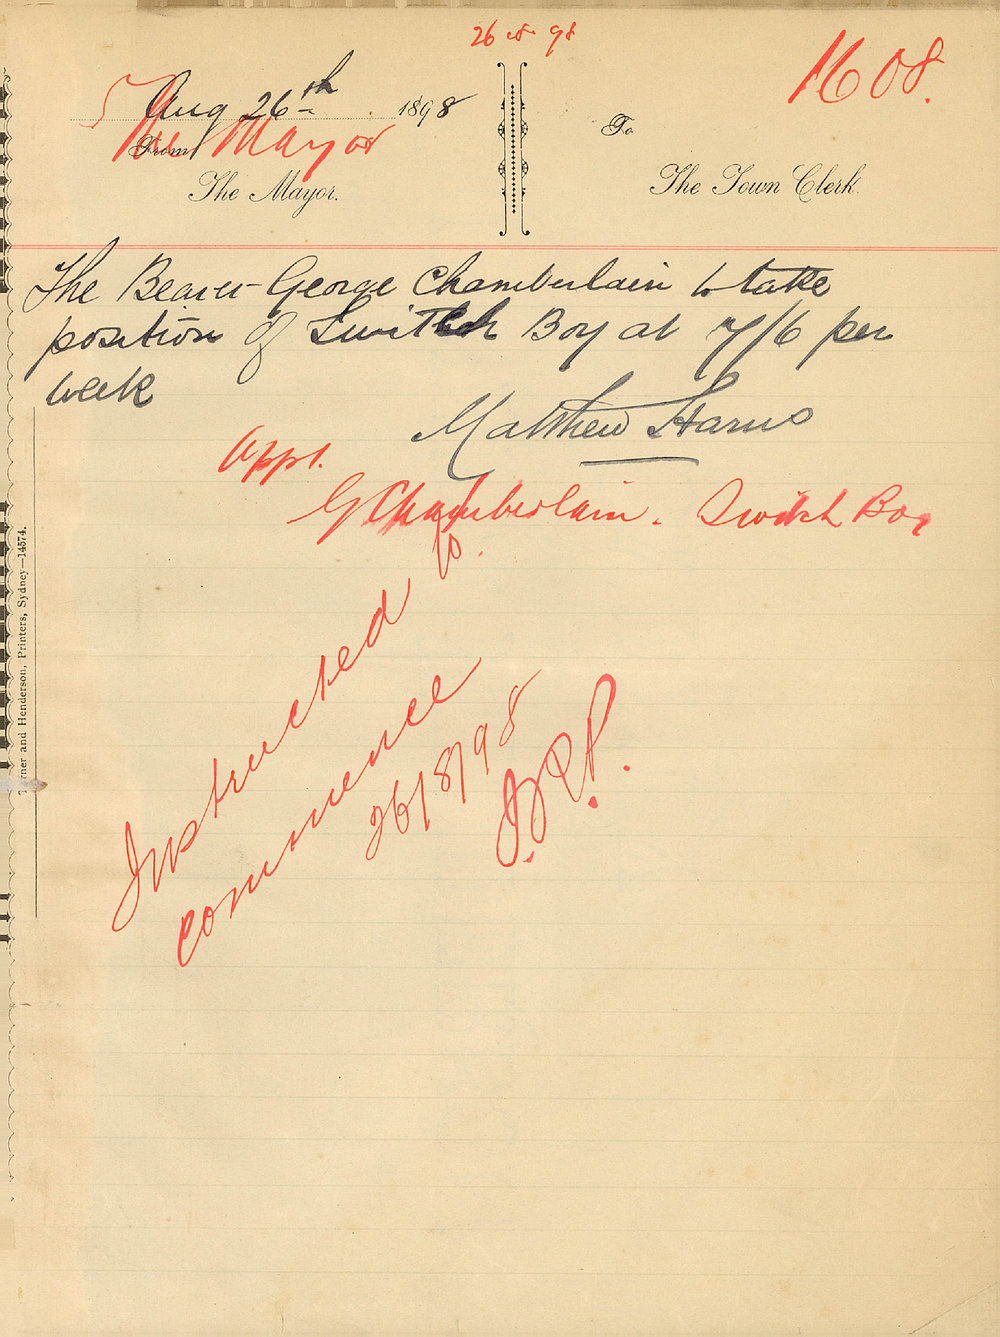 26 8 98
1608.
Aug 26th 1898
The Mayor
From
The Mayor.
To
The Town Clerk.
The Bearer George Chamberlain to take
position of Switch Boy at 7/6 per
week
Matthew Harris
Appt.
G Chamberlain. Switch Boy
Instructed to
commence
26/8/98
ner and Henderson, Printers, Sydney—14574.